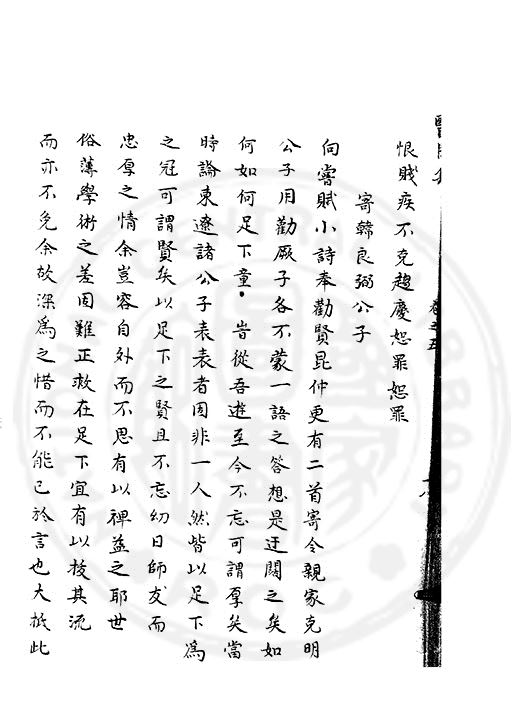 恨賤疾不克趨慶恕罪恕罪
寄韓良弼公子
向嘗賦小詩奉勸賢昆仲更有二首寄令親家克明
公子用勸厥子各不蒙一語之答想是迂闊之矣如
何如何足下童丱皆從吾遊至今不忘可謂厚矣當
時論東遼諸公子表表者固非一人然皆以足下為
之冠可謂賢矣以足下之賢且不忘幼日師友而
忠厚之情余豈容自外而不思有以裨益之耶世
俗薄學術之差固難正救在足下宜有以挍其流
而亦不免余故深為之惜而不能已於言也大抵此